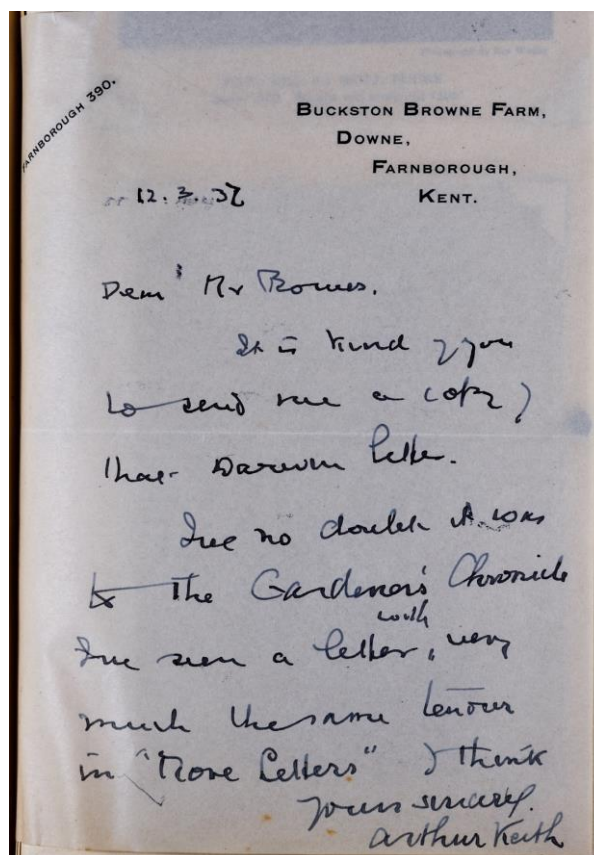 FARNBOROUGH 390.
BUCKSTON BROWNE FARM,
DOWNE,
FARNBOROUGH,
KENT.
12.3.37
Dear Mr
It is kind of you
to send me a copy of
that Darwin letter.
I've no doubt it was
to the Gardener's Chronicle
with
I've seen a letter, very
much the same tenour
in "More Letters" I think
Yours sincerely.
Arthur Keith